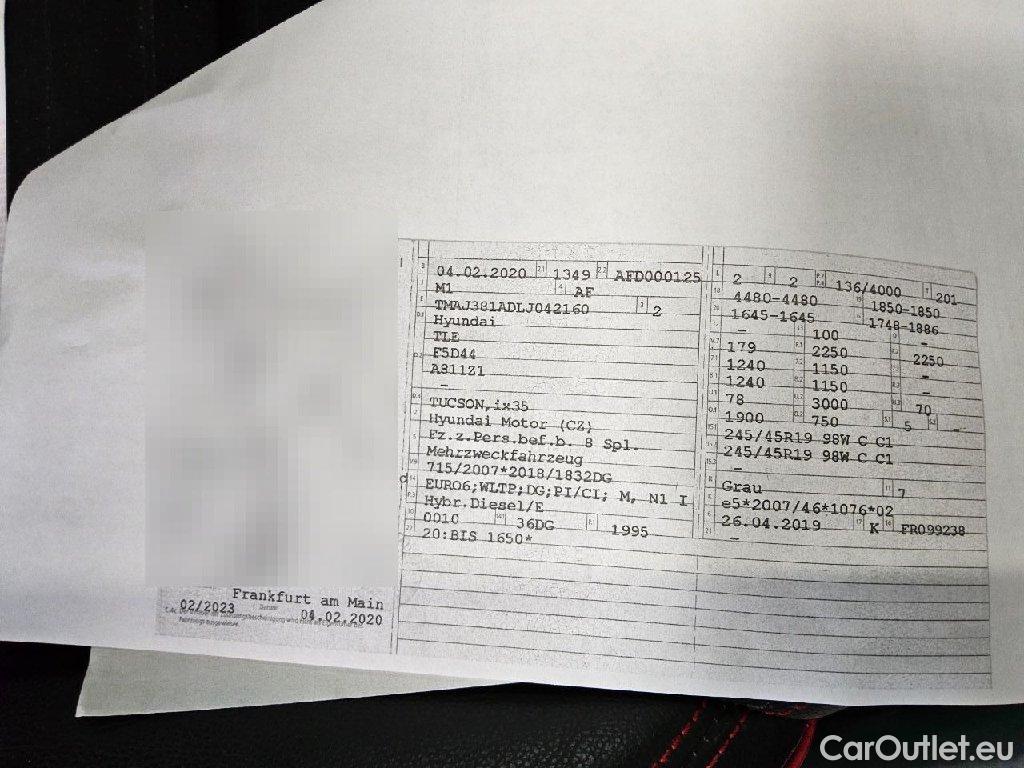 04.02.2020 1349 AFD000125
M1 AF
TMAJ381ADLJ042160 2
Hyundai
TLE
F5D44
A811Z1
–
TUCSON,ix35
Hyundai Motor (CZ)
Fz.z.Pers.bef.b. 8 Spl.
Mehrzweckfahrzeug
715/2007*2018/1832DG
EURO6;WLTP;DG;PI/CI; M, N1 I
Hybr.Diesel/E
0010 36DG 1995
20:BIS 1650*
2 2 136/4000 201
4480-4480 1850-1850
1645-1645 1748-1886
– 100 –
179 2250 2250
1240 1150 –
1240 1150 –
78 3000 70
1900 750 5 –
245/45R19 98W C C1
245/45R19 98W C C1
–
Grau 7
e5*2007/46*1076*02
26.04.2019 K FR099238
–
Frankfurt am Main
02/2023 04.02.2020
CarOutlet.eu